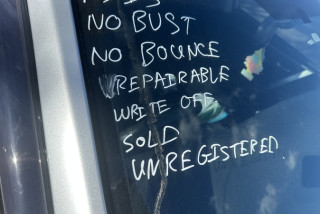 NO BUST
NO BOUNCE
REPAIRABLE
WRITE OFF
SOLD
UNREGISTERED